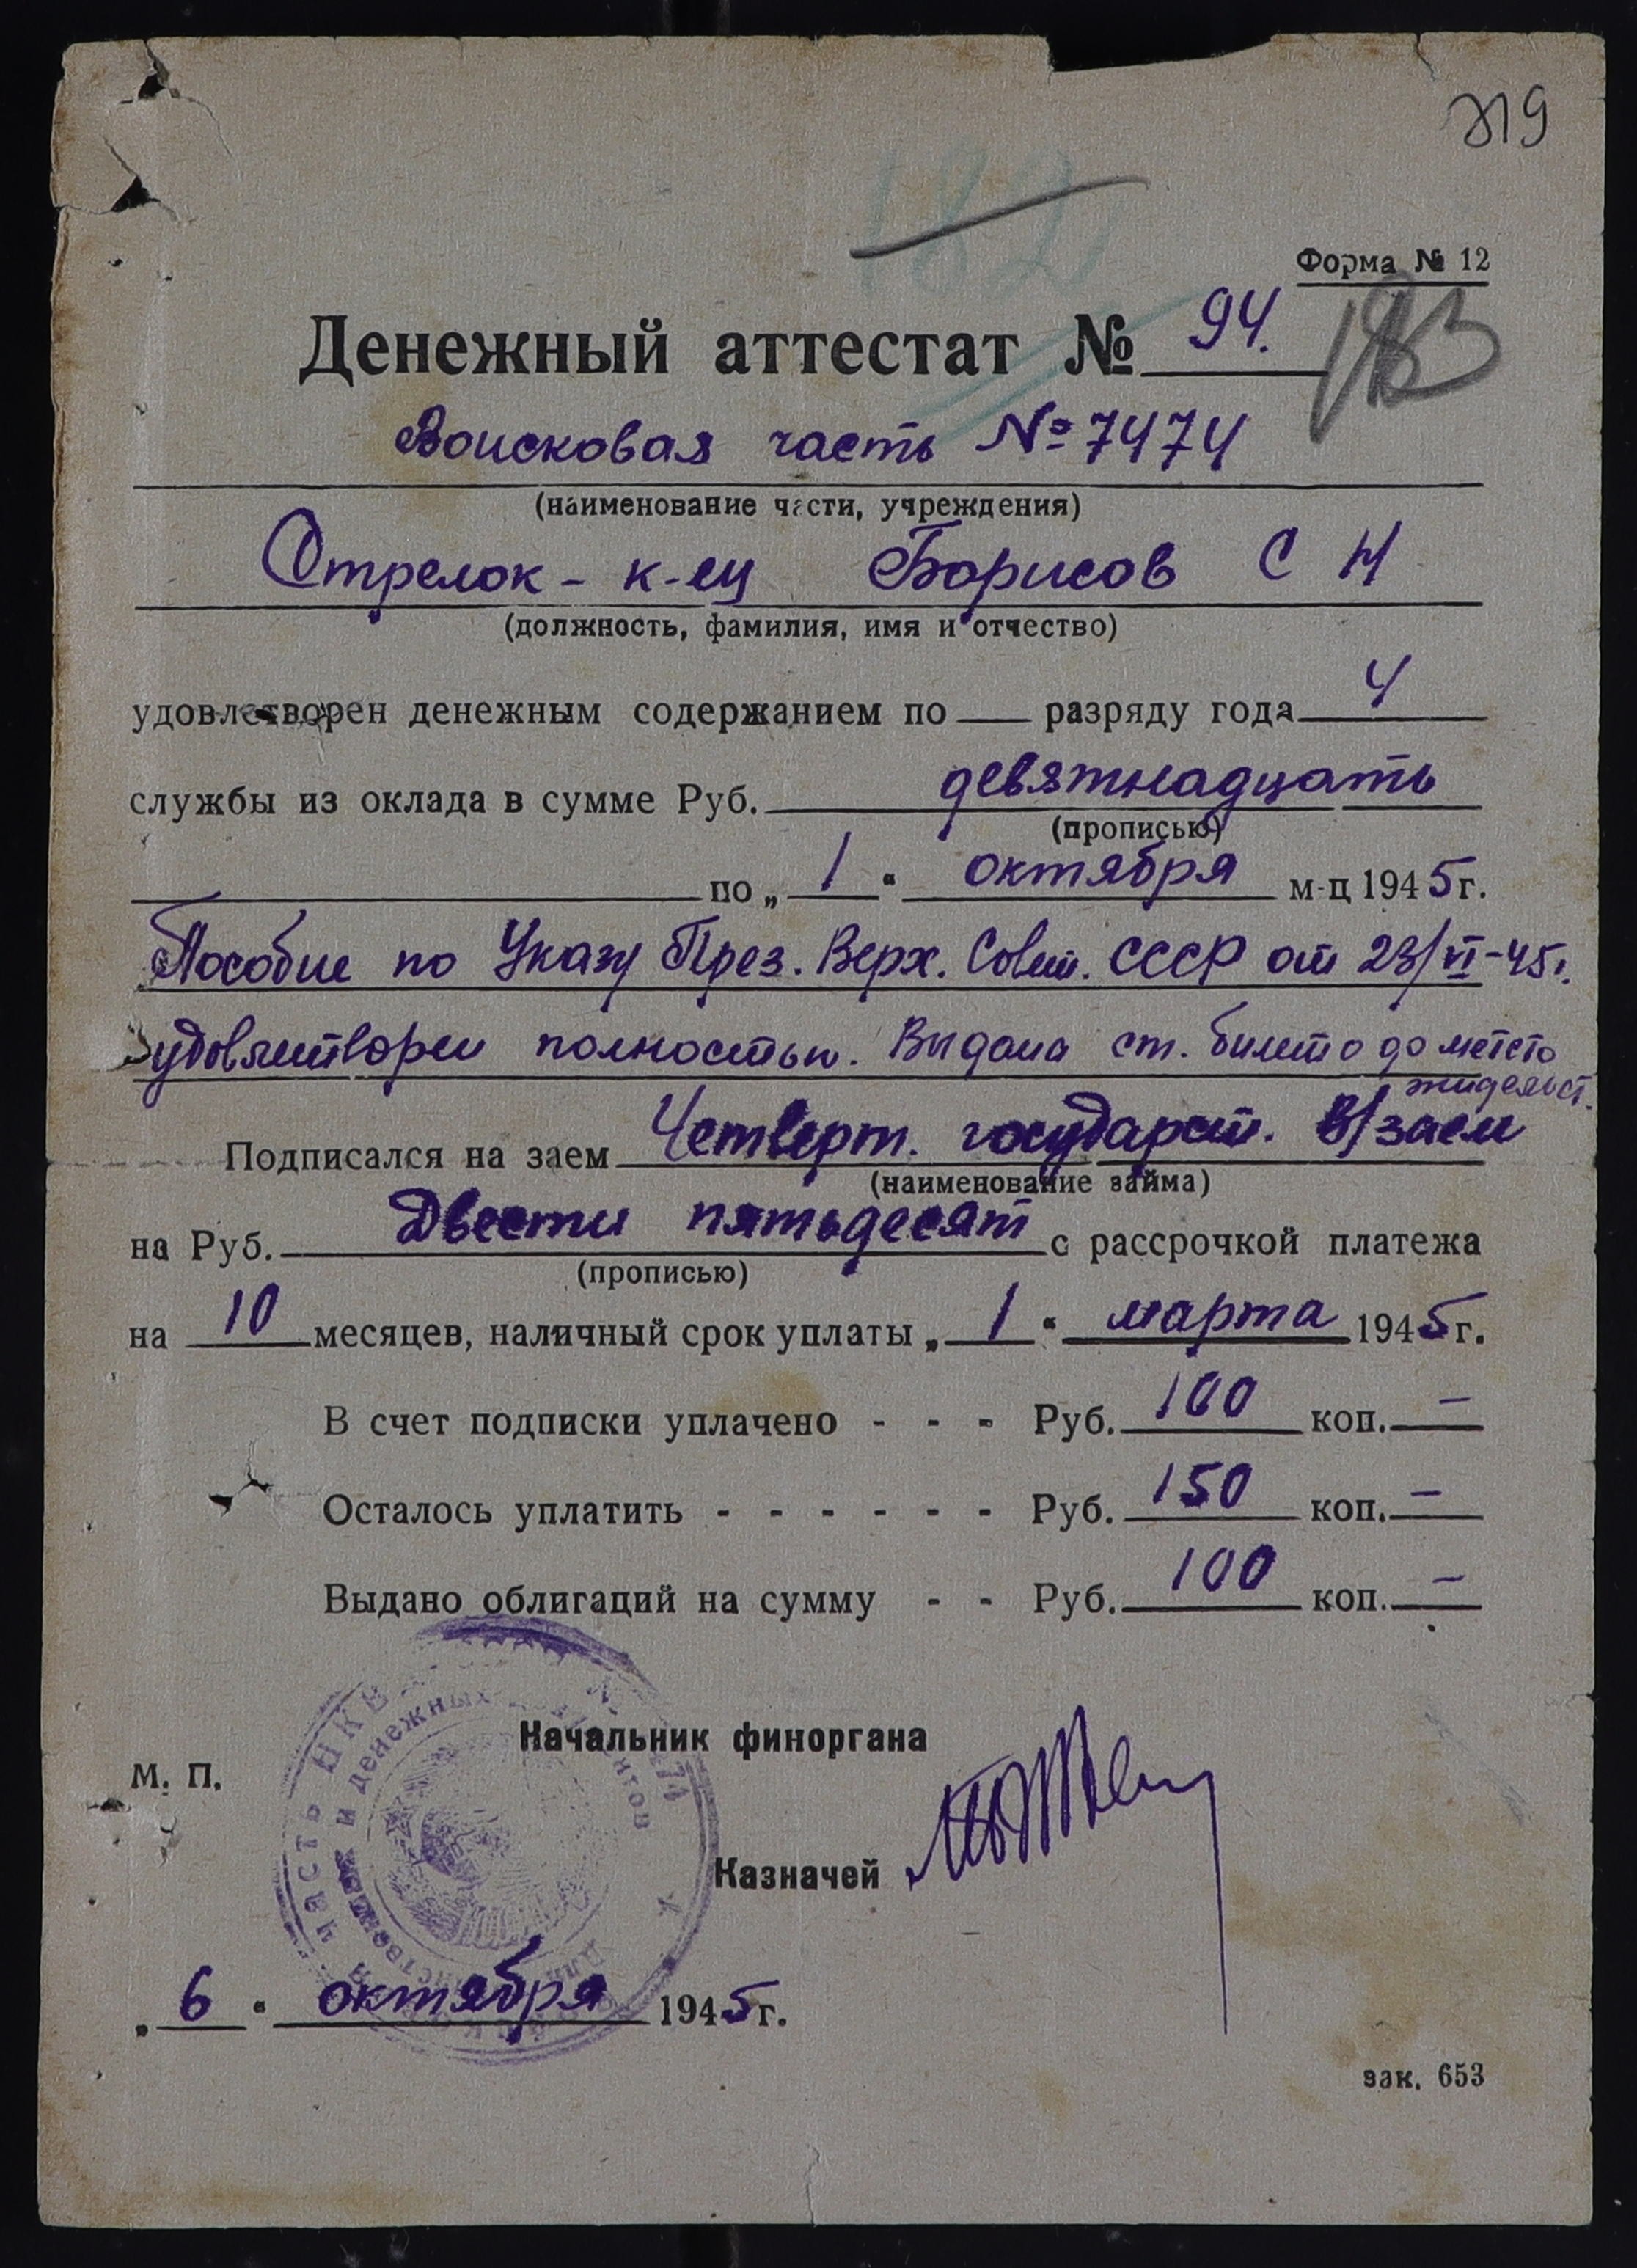 319
182
Форма № 12
183
Денежный аттестат № 94.
Воисковая часть № 7474
(наименование части, учреждения)
Стрелок - к-ец Борисов С Н
(должность, фамилия, имя и отчество)
удовлетворен денежным содержанием по — разряду года 4
службы из оклада в сумме Руб. девятнадцать
(прописью)
по „ 1 " октября м-ц 1945 г.
Пособие по Указу През. Верх. Совет. СССР от 23/VI-45г.
удовлетворен полностью. Выдана ст. билето до место
жидельст.
Подписался на заем Четверт. государст. В/заем
(наименование займа)
на Руб. Двести пятьдесят с рассрочкой платежа
(прописью)
на 10 месяцев, наличный срок уплаты „ 1 " марта 1945 г.
В счет подписки уплачено - - - Руб. 100 коп. —
Осталось уплатить - - - - - - Руб. 150 коп. —
Выдано облигаций на сумму - - Руб. 100 коп. —
часть НКВ
и денежных
Начальник финоргана
М. П.
Казначей
„ 6 " октября 1945 г.
зак. 653